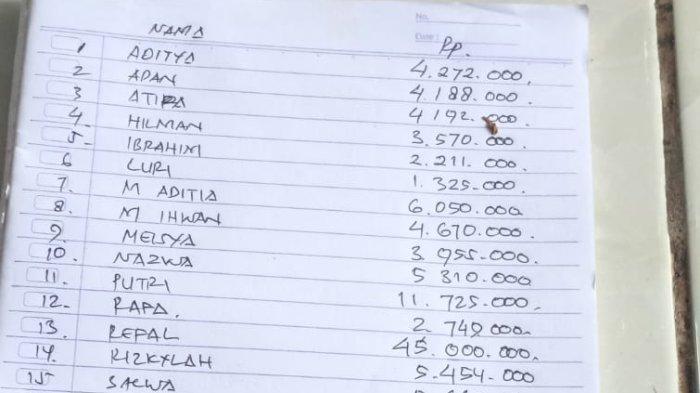 No.
Date:
NAMA Rp.
1 ADITYA 4.272.000,
2 ADAN 4.188.000
3 4 192.000
4. HILMAN 3.570.000
5- IBRAHIM 2.211.000
6 LURI 1.325-000.
7. M ADITIA 6.050.000
8. M IHWAN 4.670.000
9. MEISYA 3.955-000.
10. NAZWA 5 310.000
11. PUTRI 11.725.000.
12- RAPA. 2.749.000.
13. REPAL 45.000.000.
14. RIZKYLAH 5.454.000
15 SALWA